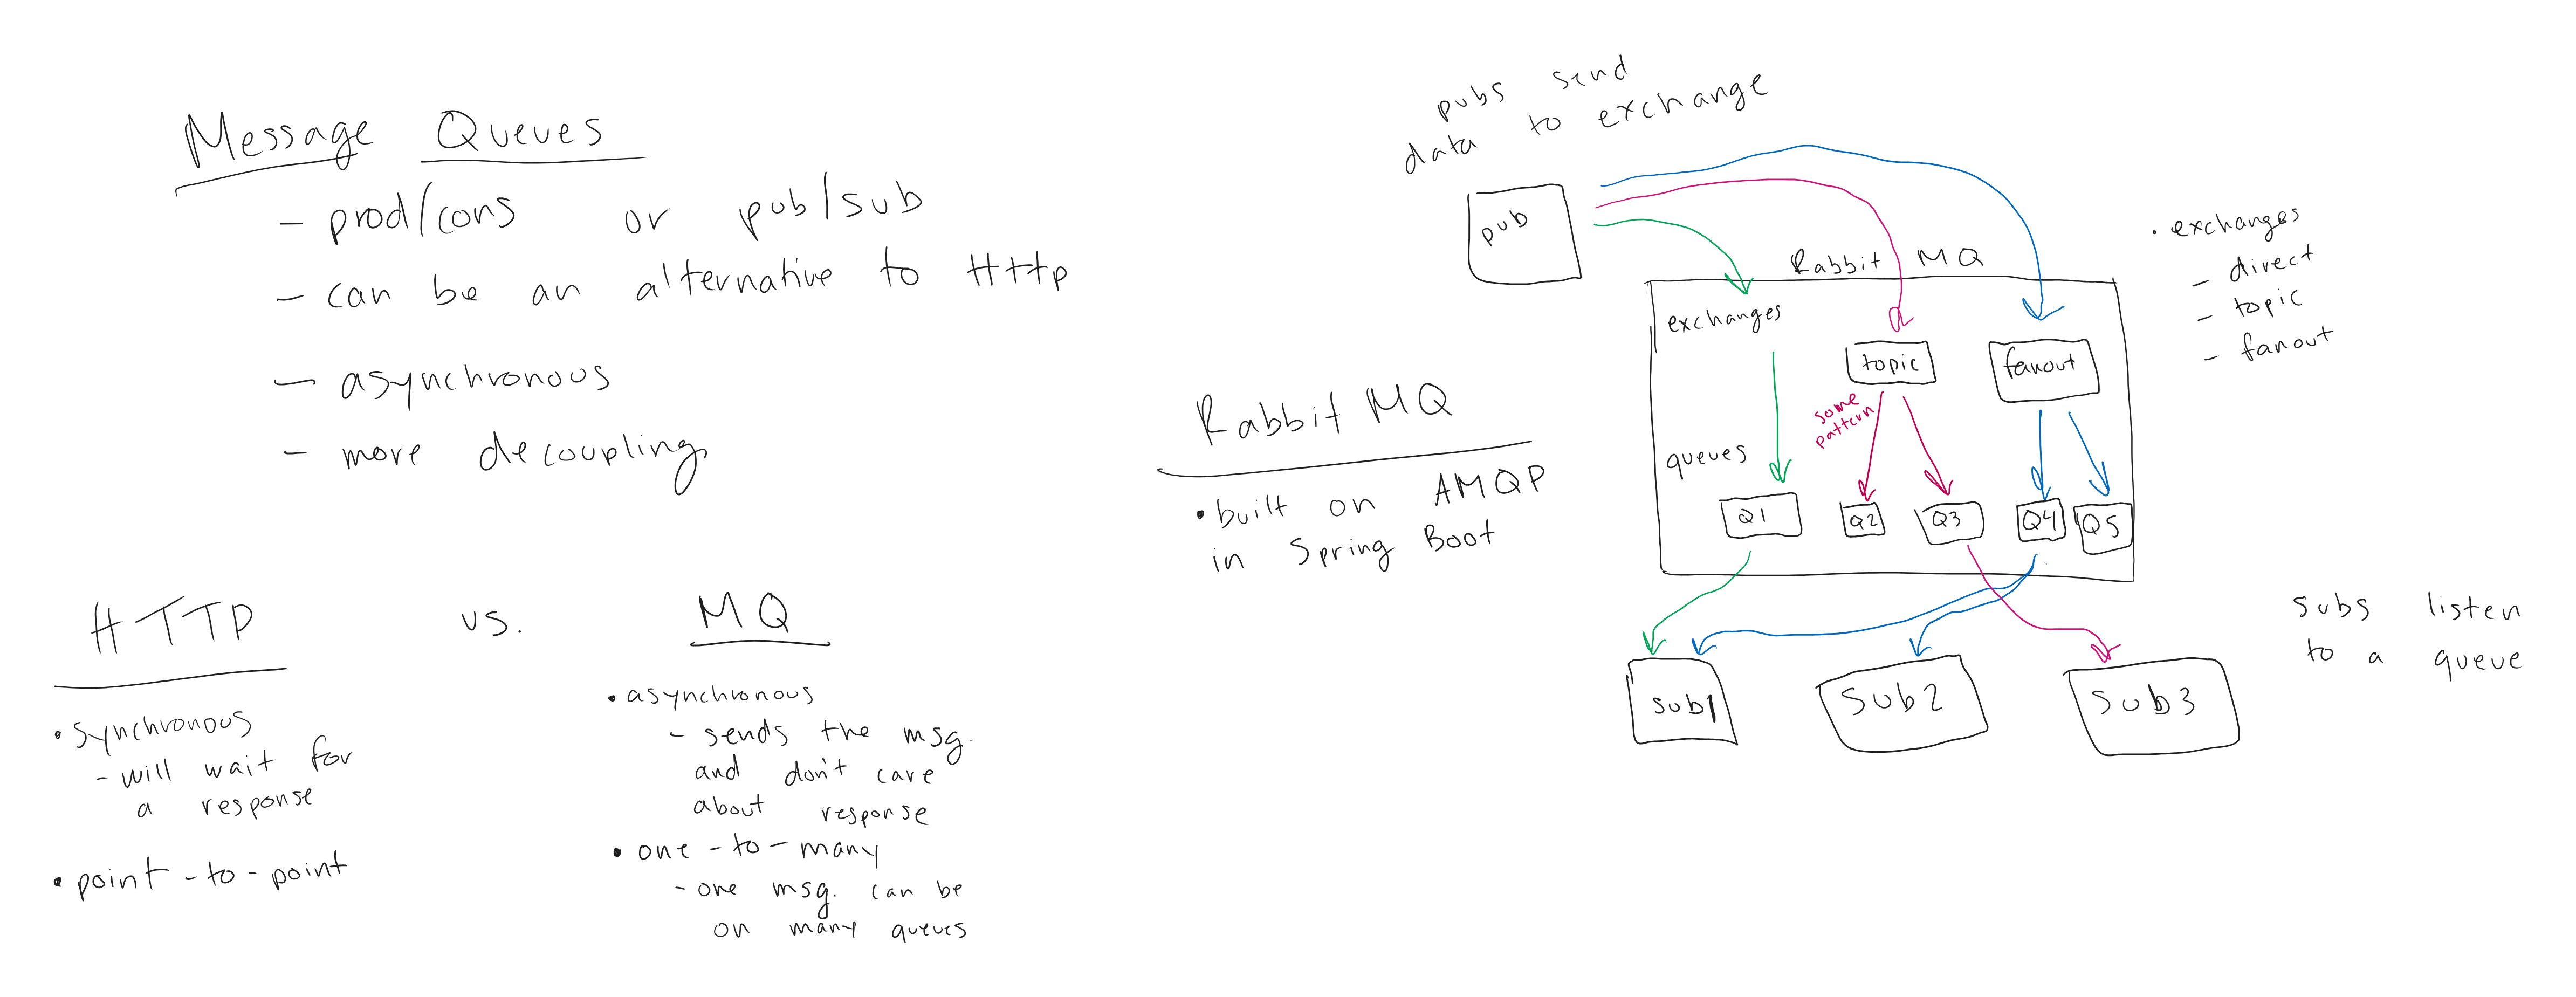 Message Queues
- prod/cons or pub/sub
- can be an alternative to Http
- asynchronous
- more decoupling
HTTP vs. MQ
• synchronous
- will wait for
a response
• point-to-point
• asynchronous
- sends the msg.
and don't care
about response
• one-to-many
- one msg. can be
on many queues
Rabbit MQ
• built on AMQP
in Spring Boot
pubs send
data to exchange
pub
Rabbit MQ
exchanges
topic
fanout
some
pattern
queues
Q1
Q2
Q3
Q4
Q5
sub1
Sub2
Sub3
• exchanges
- direct
- topic
- fanout
subs listen
to a queue